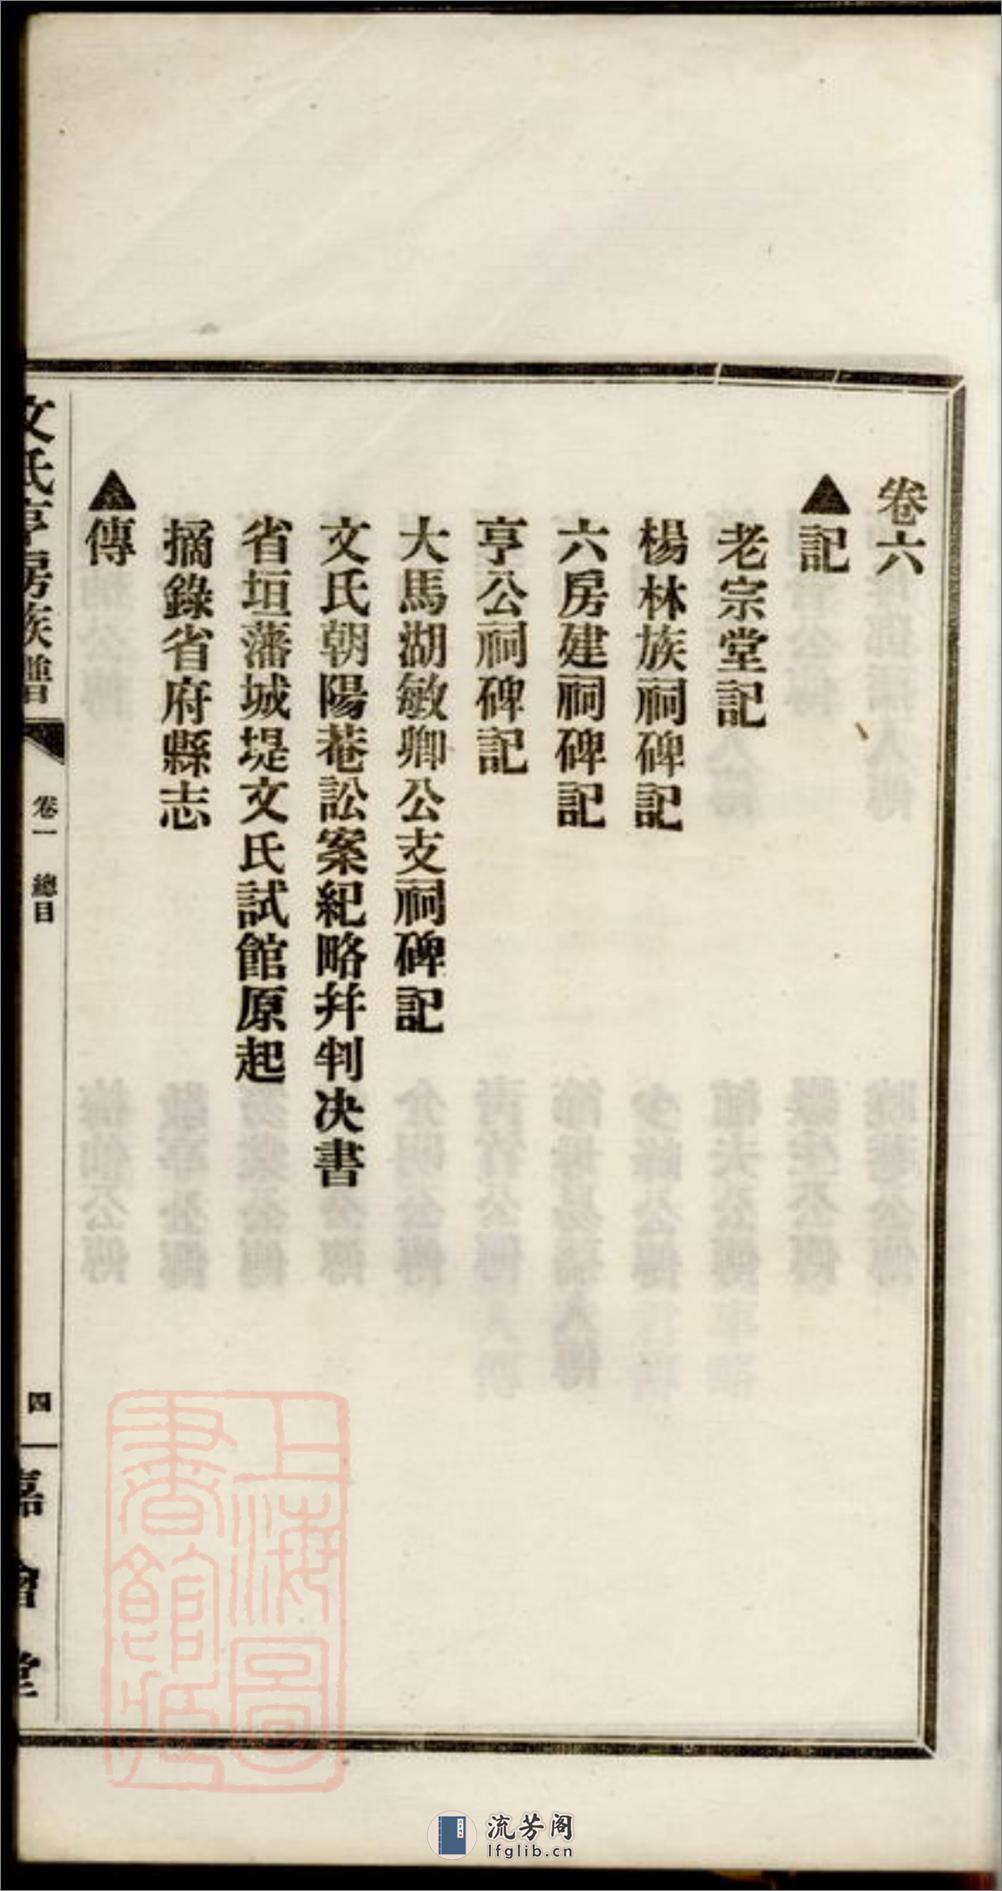 卷六
▲記
老宗堂記
楊林族祠碑記
六房建祠碑記
亨公祠碑記
大馬湖敏卿公支祠碑記
文氏朝陽巷訟案紀略幷判決書
省垣藩城堤文氏試館原起
摘錄省府縣志
▲傳
文氏亨房族譜
卷一 總目
四
嘉會堂
上海圖書館藏
流芳阁
lfglib.cn